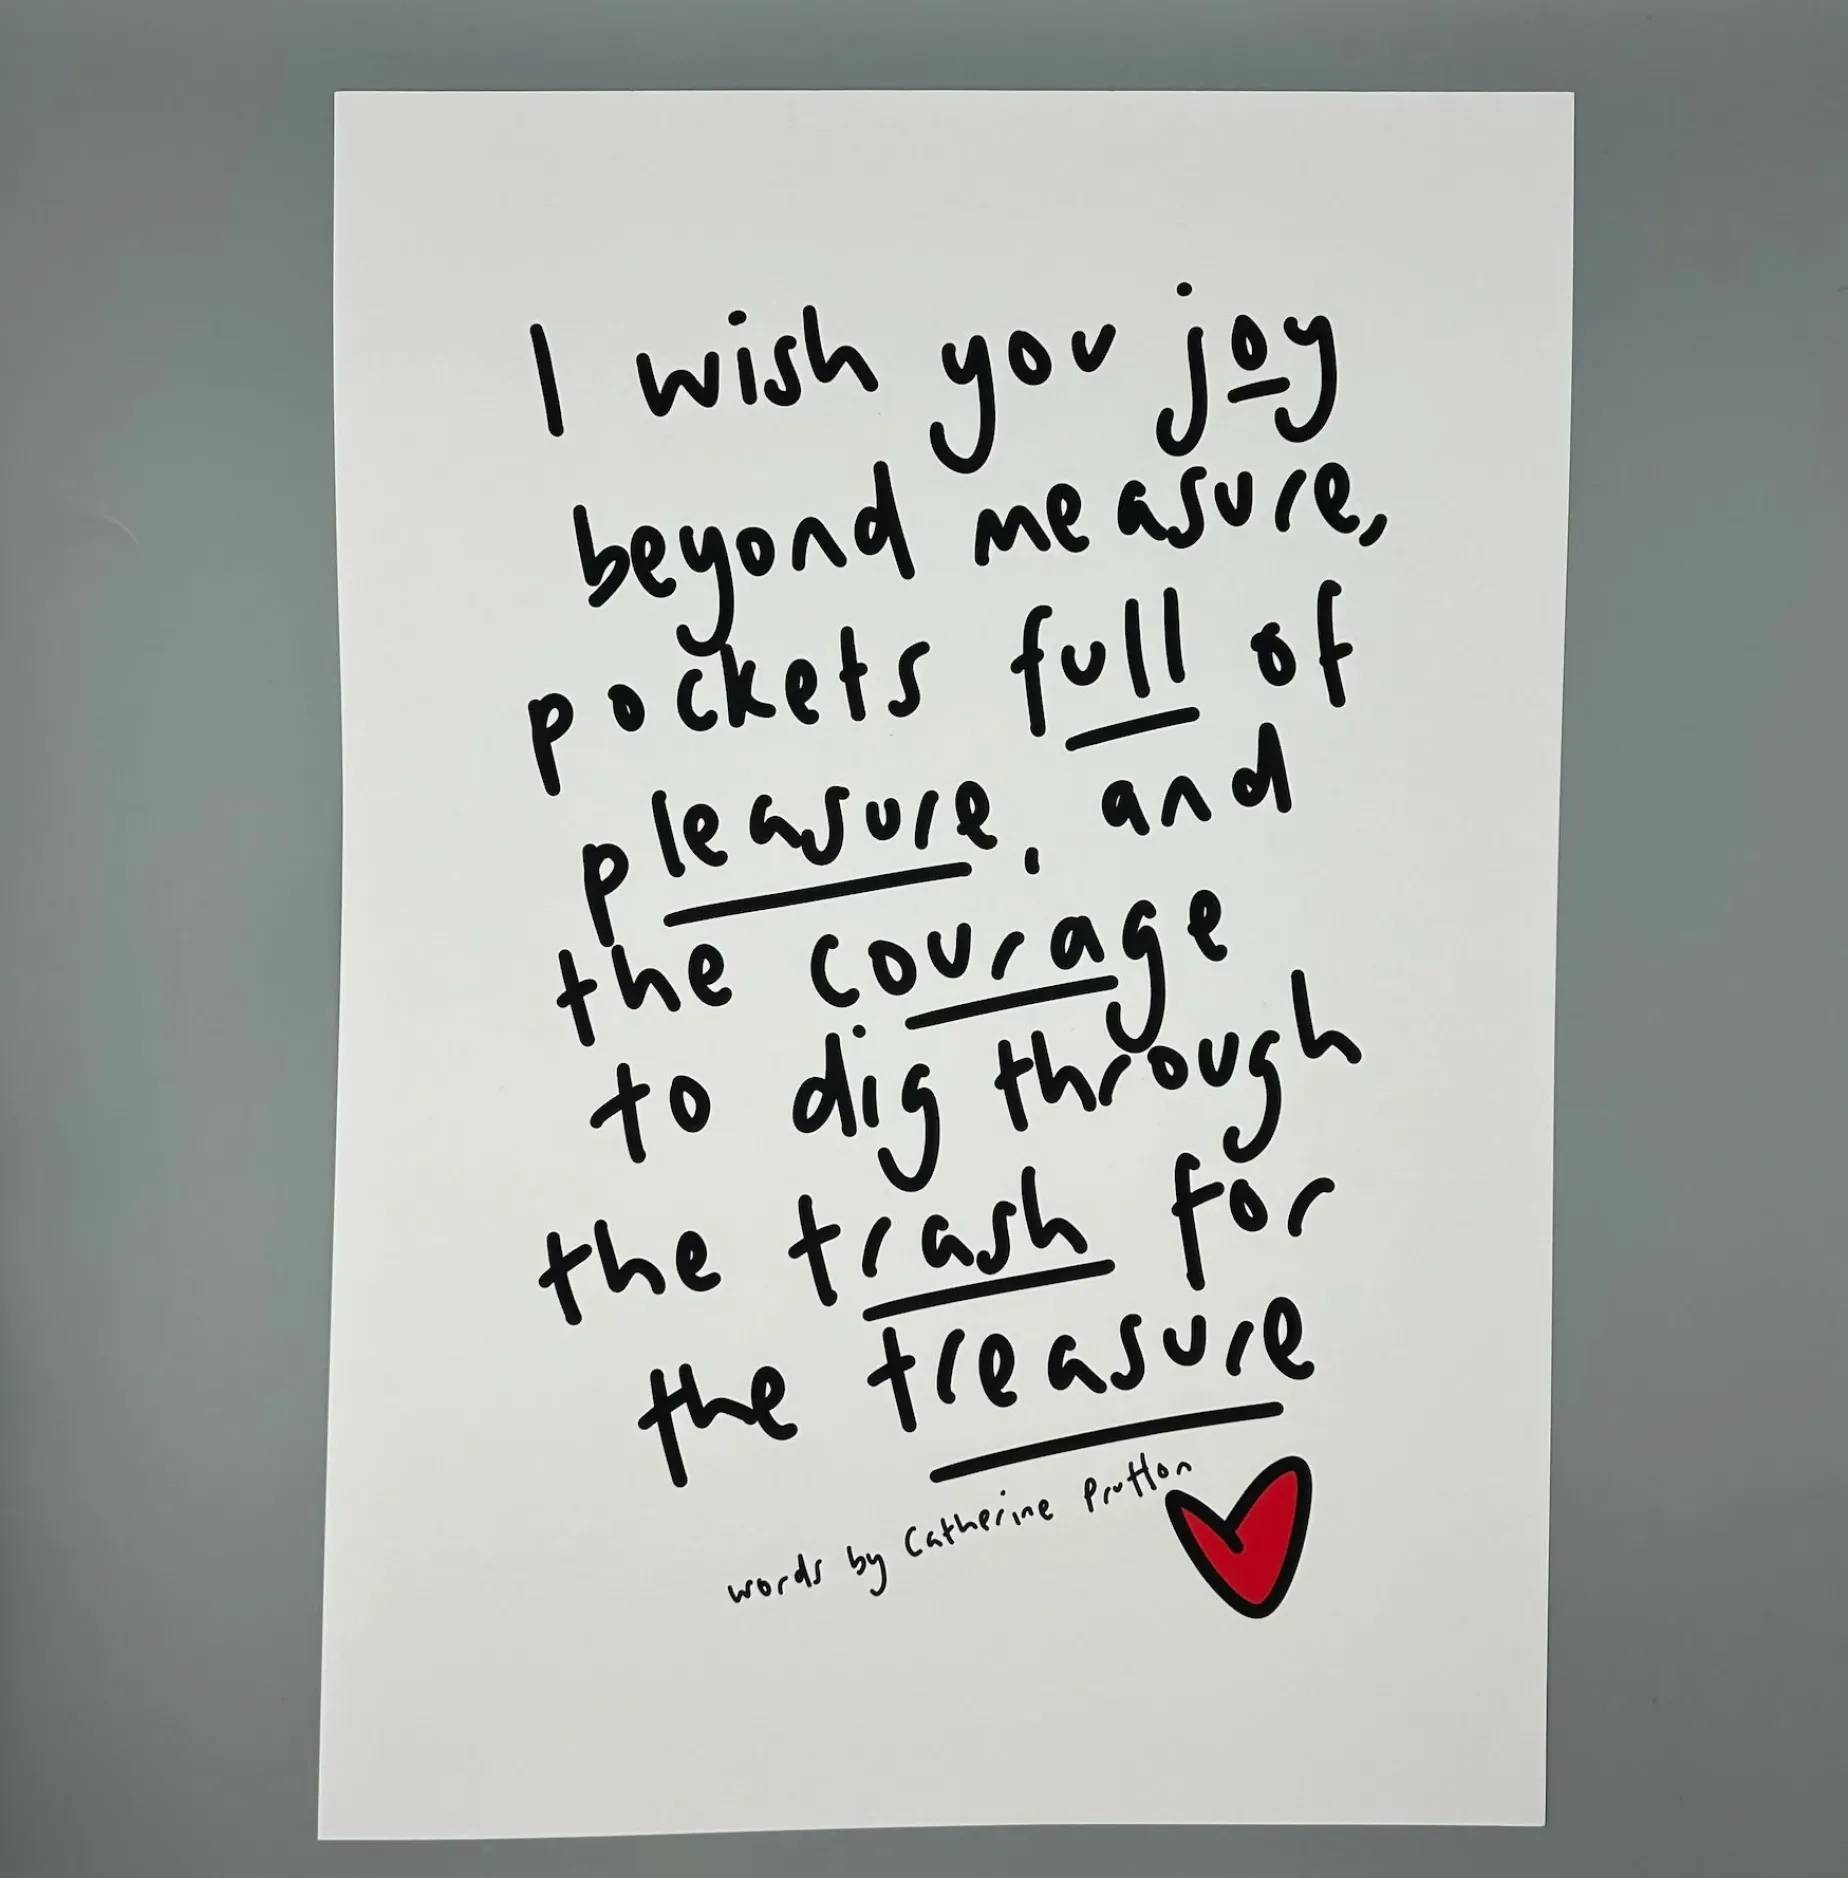 I wish you joy
beyond measure,
pockets full of
pleasure. and
the courage
to dig through
the trash for
the treasure
words by Catherine Prutton